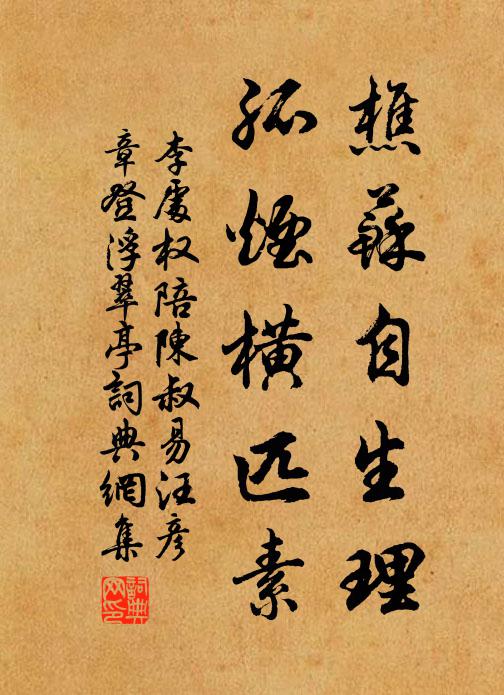 樵蘇自生理
孤煙橫匹素
李處权陪陳叔易汪彥
章登浮翠亭詞典網集
詞典网印